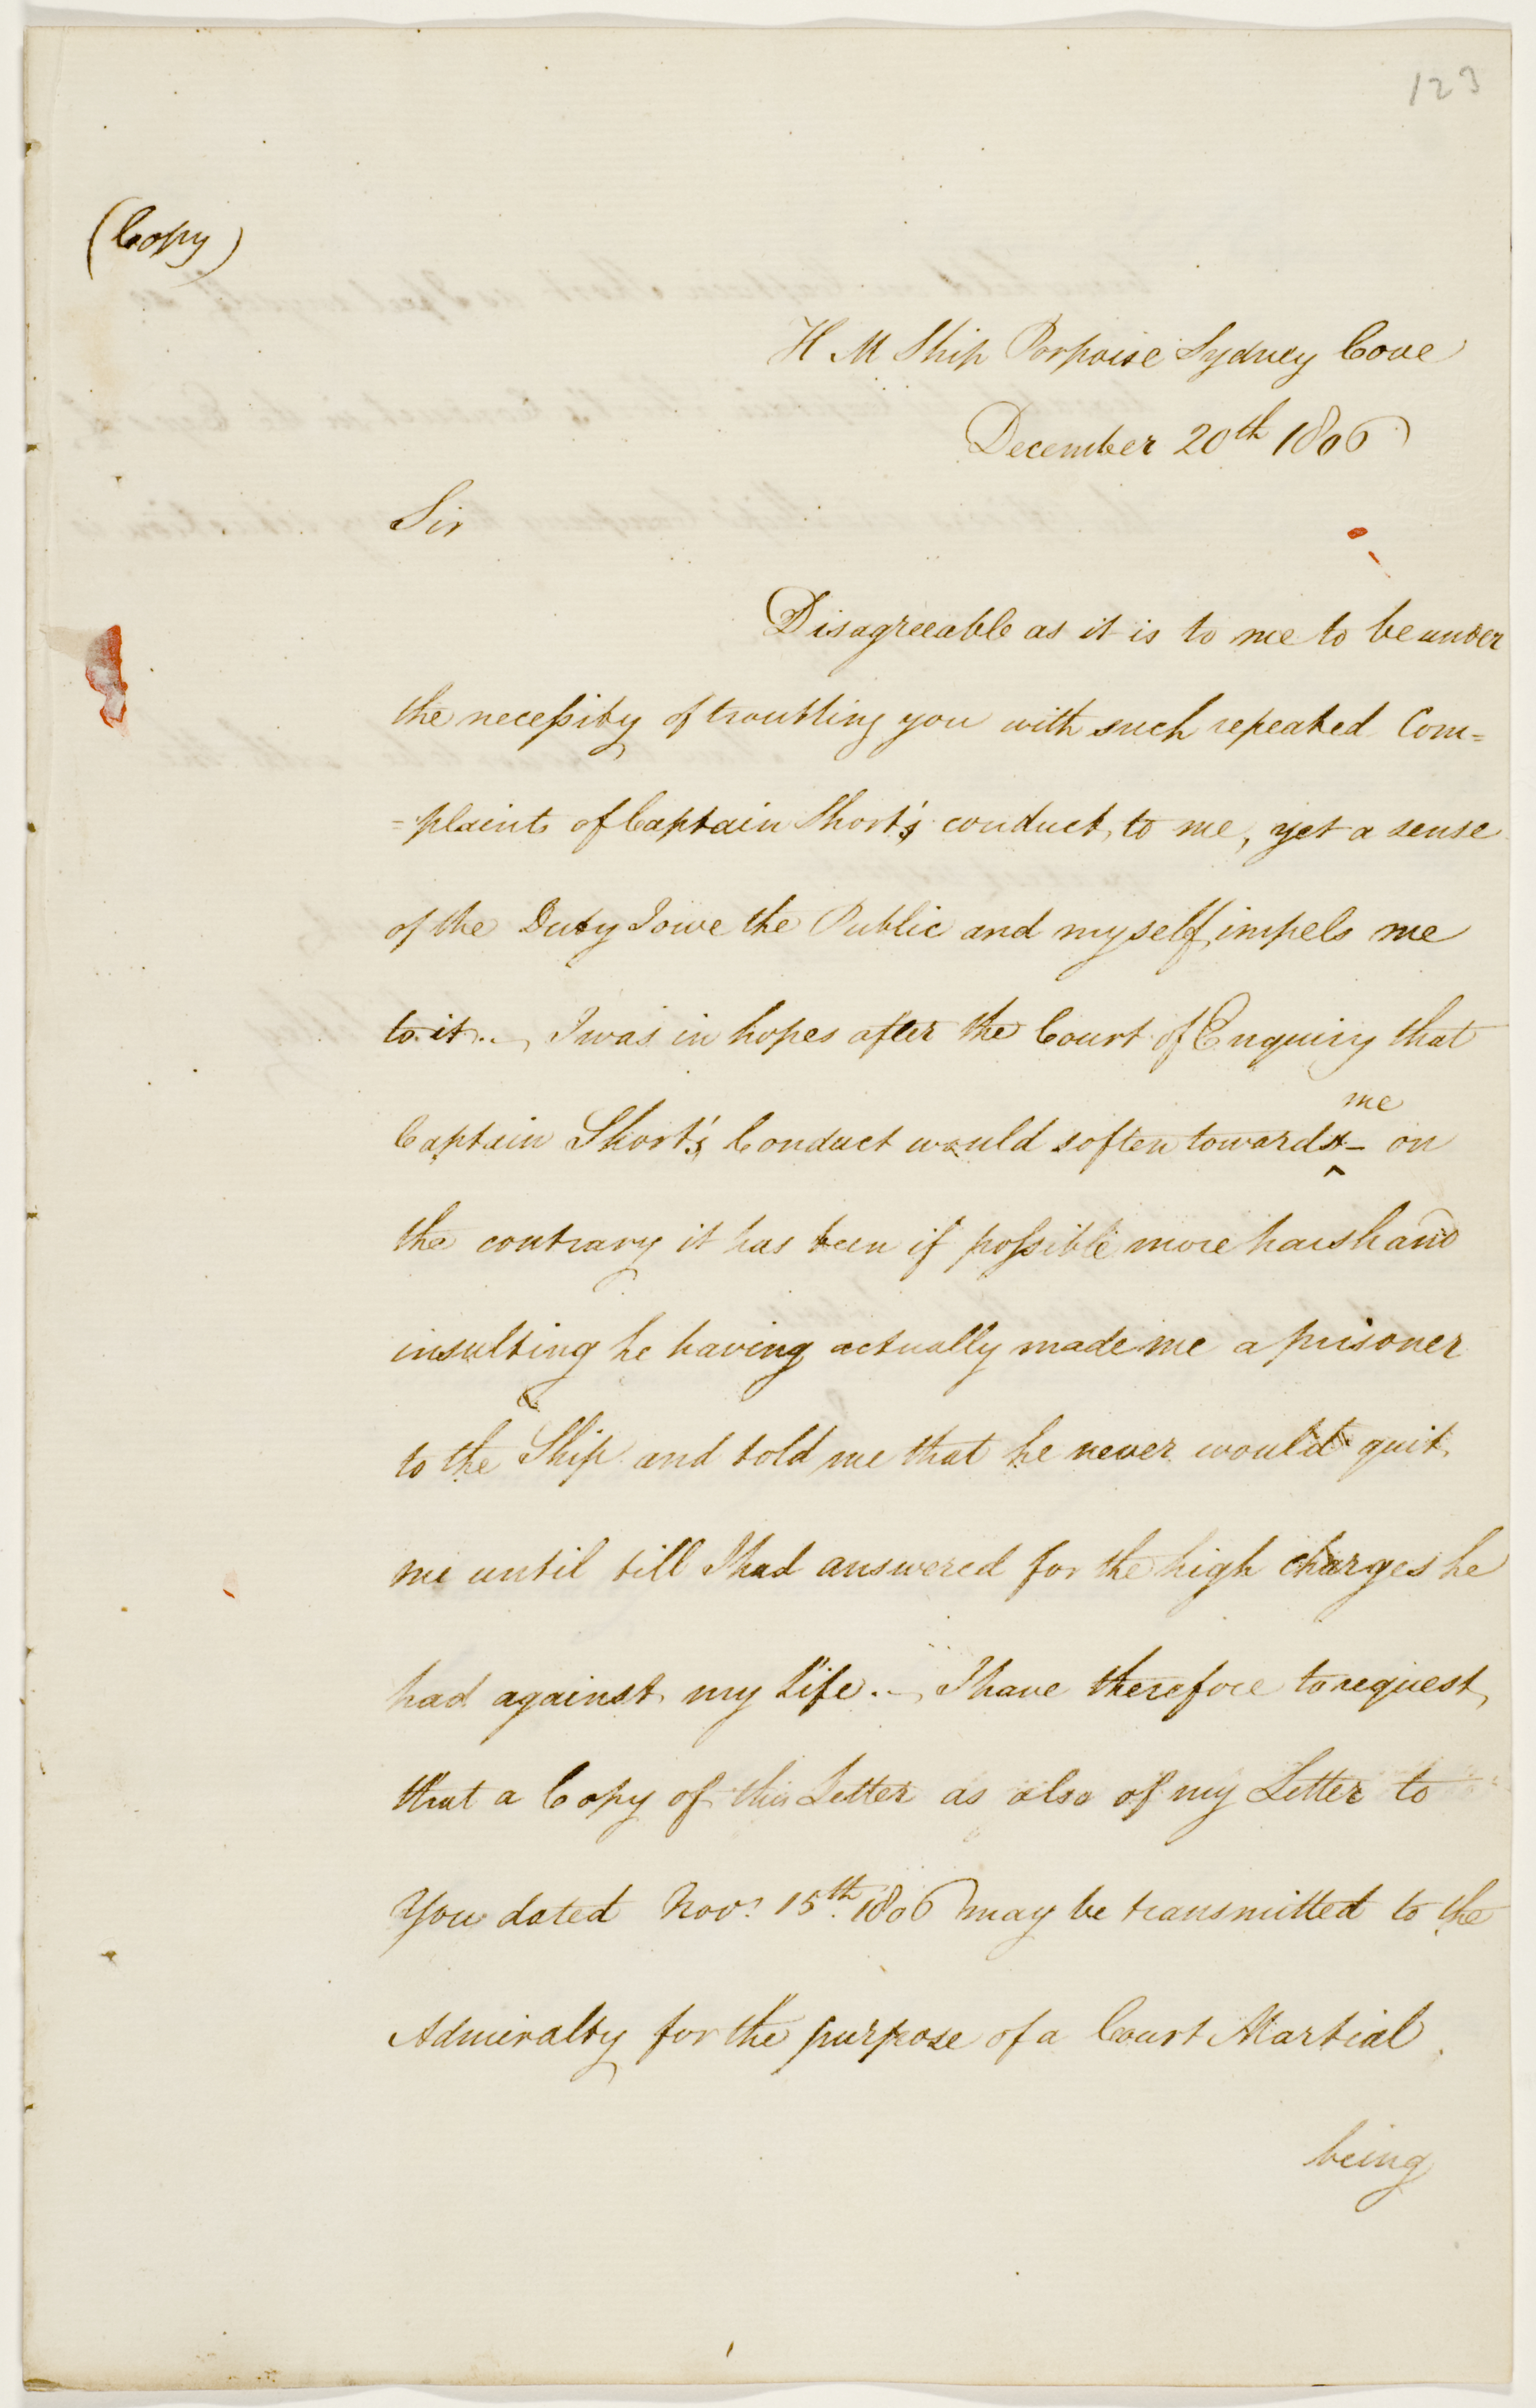 123
(Copy)
H M Ship Porpoise Sydney Cove
December 20th 1806
Sir
Disagreeable as it is to me to be under
the necessity of troubling you with such repeated Com=
=plaints of Captain Short's conduct, to me, yet a sense
of the Duty I owe the Public and myself, impels me
to it._ I was in hopes after the Court of Enquiry that
me
Captain Short's Conduct would soften towards ‸ – on
the contrary it has been if possible more harsh and
insulting he having actually made me a prisoner
to the Ship and told me that he never would quit
me until till I had answered for the high charges he
had against my life._ I have therefore to request,
that a Copy of this Letter as also of my Letter to
You dated Novr. 15th. 1806 may be transmitted to the
Admiralty for the purpose of a Court Martial.
being